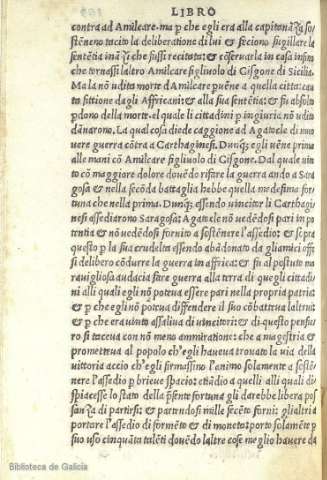 LIBRO
contra ad Amilcare. ma p che egli era alla capitanãZa so/
stẽneno tacito la deliberatione di lui & feciono sugillare la
sentẽtia inãZi che fussi recitata: & reseruarla in casa insino
che tornassi laltro Amilcare figliuolo di Gisgone di Sicilia
Ma la nõ udita morte d'Amilcare puẽne a quella citta: ca
to fittione dagli Affricani: & alla sua sentẽtia: & fu absoluto
pdono della morte. el quale li cittadini p iniuria nõ udito
dãnarono. La qual cosa diede caggione ad Agatocle di muo
uere guerra cõtra a Carthaginesi. Dunq; egli uẽne prima
alle mani cõ Amilcare figliuolo di Gisgone. Dal quale uin
to cõ maggiore dolore douẽdo rifare la guerra ando a Sara
gosa & nella secõda battaglia hebbe quella medesima fortu
tuna che nella prima. Dunq; essendo uincitor li Carthagi
nesi assediarono Saragosa; Agatocle nõ uedẽdosi pari in po
tentia & nõ uedẽdosi fornito a sostẽnere l'assedio: & sepra
questo p la sua crudelta essendo abãdonato da gliamici offe
si delibero cõdurre la guerra in affrica: & fu al postuto ma
rauigliosa audacia fare guerra alla terra di quegli cittadi
ni alli quali egli nõ poteua essere pari nella propria patria:
& p che egli nõ poteua diffendere il suo cõbatteua laltrui:
& p che era uinto assaliua di uincitori: & di questo pensie
ro si taceua con nõ meno ammiratione: che a magestria &
prometteua al popolo ch'egli haueua trouato la uia della
uittoria accio ch'egli firmassino l'animo solamente a sostẽ
nere l'assedio p brieue spacio: etiãdio a quelli alli quali di/
spiacesse lo stato della psẽte fortuna gli darebbe libera pos
sanZa di partirsi: & partendosi mille secẽto forni: glialtri a
portare l'assedio di formẽto & di moneto: porto solamẽte p
suo uso cinquãta talẽti douẽdo laltre cose meglio hauere da
Biblioteca de Galicia